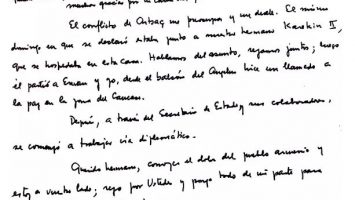 muchas gracias por
El conflicto de Artsaj me preocupa y me duele. El mismo
domingo en que se declaró estaba junto a nuestro hermano Karekin II,
que se hospedaba en esta Casa. Hablamos del asunto, rezamos juntos; luego
él partió a Erevan y yo, desde el balcón del Angelus hice un llamado a
la paz en la zona del Caucaso.
Después, a través del Secretario de Estado y sus colaboradores,
se comenzó a trabajar vía diplomática.
Querido hermano, conozco el dolor del pueblo armenio y
estoy a vuestro lado; rezo por Ustedes y pongo todo de mi parte para